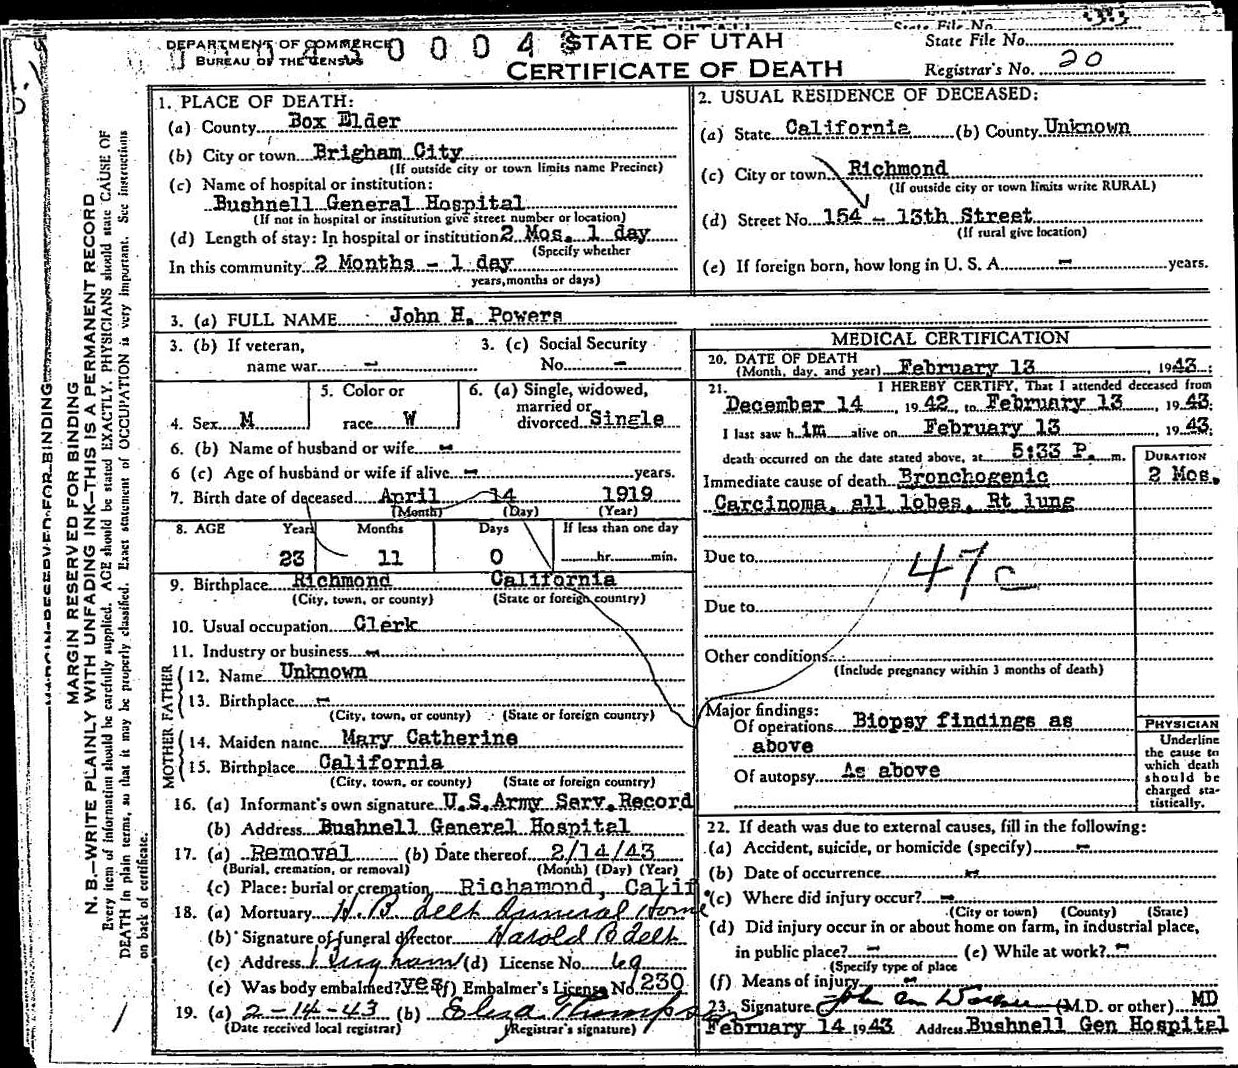 State File No.
DEPARTMENT OF COMMERCE 0 0 0 4 STATE OF UTAH State File No.
BUREAU OF THE CENSUS
CERTIFICATE OF DEATH Registrar's No. 20
MARGIN RESERVED FOR BINDING
N. B.—WRITE PLAINLY WITH UNFADING INK—THIS IS A PERMANENT RECORD
Every item of information should be carefully supplied. AGE should be stated EXACTLY. PHYSICIANS should state CAUSE OF
DEATH in plain terms, so that it may be properly classified. Exact statement of OCCUPATION is very important. See instructions
on back of certificate.
1. PLACE OF DEATH:
(a) County Box Elder
(b) City or town Brigham City
(If outside city or town limits name Precinct)
(c) Name of hospital or institution:
Bushnell General Hospital
(If not in hospital or institution give street number or location)
(d) Length of stay: In hospital or institution 2 Mos. 1 day
(Specify whether
In this community 2 Months - 1 day
years, months or days)
2. USUAL RESIDENCE OF DECEASED:
(a) State California (b) County Unknown
(c) City or town Richmond
(If outside city or town limits write RURAL)
(d) Street No. 154 - 13th Street
(If rural give location)
(e) If foreign born, how long in U. S. A. - years.
3. (a) FULL NAME John H. Powers
3. (b) If veteran, 3. (c) Social Security
name war - No. -
4. Sex M
5. Color or
race W
6. (a) Single, widowed,
married or
divorced Single
6. (b) Name of husband or wife -
6 (c) Age of husband or wife if alive - years.
7. Birth date of deceased April 14 1919
(Month) (Day) (Year)
8. AGE Years Months Days If less than one day
23 11 0 hr. min.
9. Birthplace Richmond California
(City, town, or county) (State or foreign country)
10. Usual occupation Clerk
11. Industry or business -
FATHER
12. Name Unknown
13. Birthplace -
(City, town, or county) (State or foreign country)
MOTHER
14. Maiden name Mary Catherine
15. Birthplace California
(City, town, or county) (State or foreign country)
16. (a) Informant's own signature U.S.Army Serv.Record
(b) Address Bushnell General Hospital
17. (a) Removal (b) Date thereof 2/14/43
(Burial, cremation, or removal) (Month) (Day) (Year)
(c) Place: burial or cremation Richamond, Calif
18. (a) Mortuary H. B. Felt Funeral Home
(b) Signature of funeral director Harold B Felt
(c) Address Brigham (d) License No. 69
(e) Was body embalmed? yes (f) Embalmer's License No. 230
19. (a) 2-14-43 (b) Eliza Thompson
(Date received local registrar) (Registrar's signature)
MEDICAL CERTIFICATION
20. DATE OF DEATH
(Month, day, and year) February 13, 1943.
21. I HEREBY CERTIFY, That I attended deceased from
December 14, 1942, to February 13, 1943.
I last saw him alive on February 13, 1943.
death occurred on the date stated above, at 5:33 P. m.
DURATION
Immediate cause of death Bronchogenic 2 Mos.
Carcinoma, all lobes, Rt lung
Due to 47c
Due to
Other conditions
(Include pregnancy within 3 months of death)
Major findings:
Of operations Biopsy findings as
above
Of autopsy As above
PHYSICIAN
Underline
the cause to
which death
should be
charged sta-
tistically.
22. If death was due to external causes, fill in the following:
(a) Accident, suicide, or homicide (specify) -
(b) Date of occurrence -
(c) Where did injury occur? -
(City or town) (County) (State)
(d) Did injury occur in or about home on farm, in industrial place,
in public place? - (e) While at work? -
(Specify type of place
(f) Means of injury -
23. Signature John (M.D. or other) MD
February 14 1943 Address Bushnell Gen Hospital